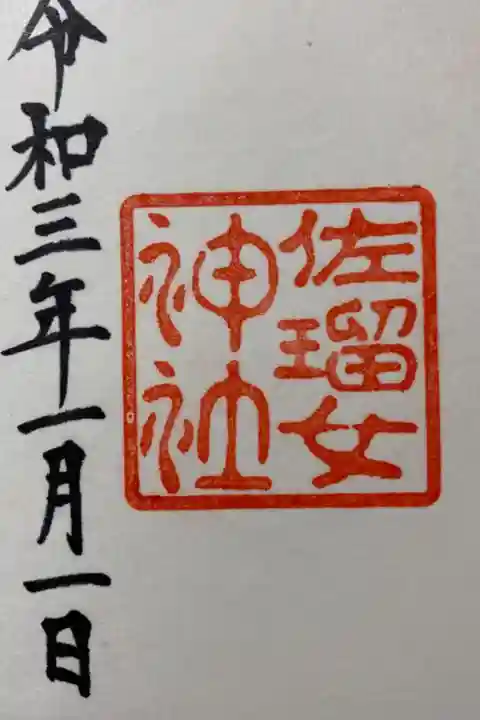 佐瑠女
神社
令和三年一月一日